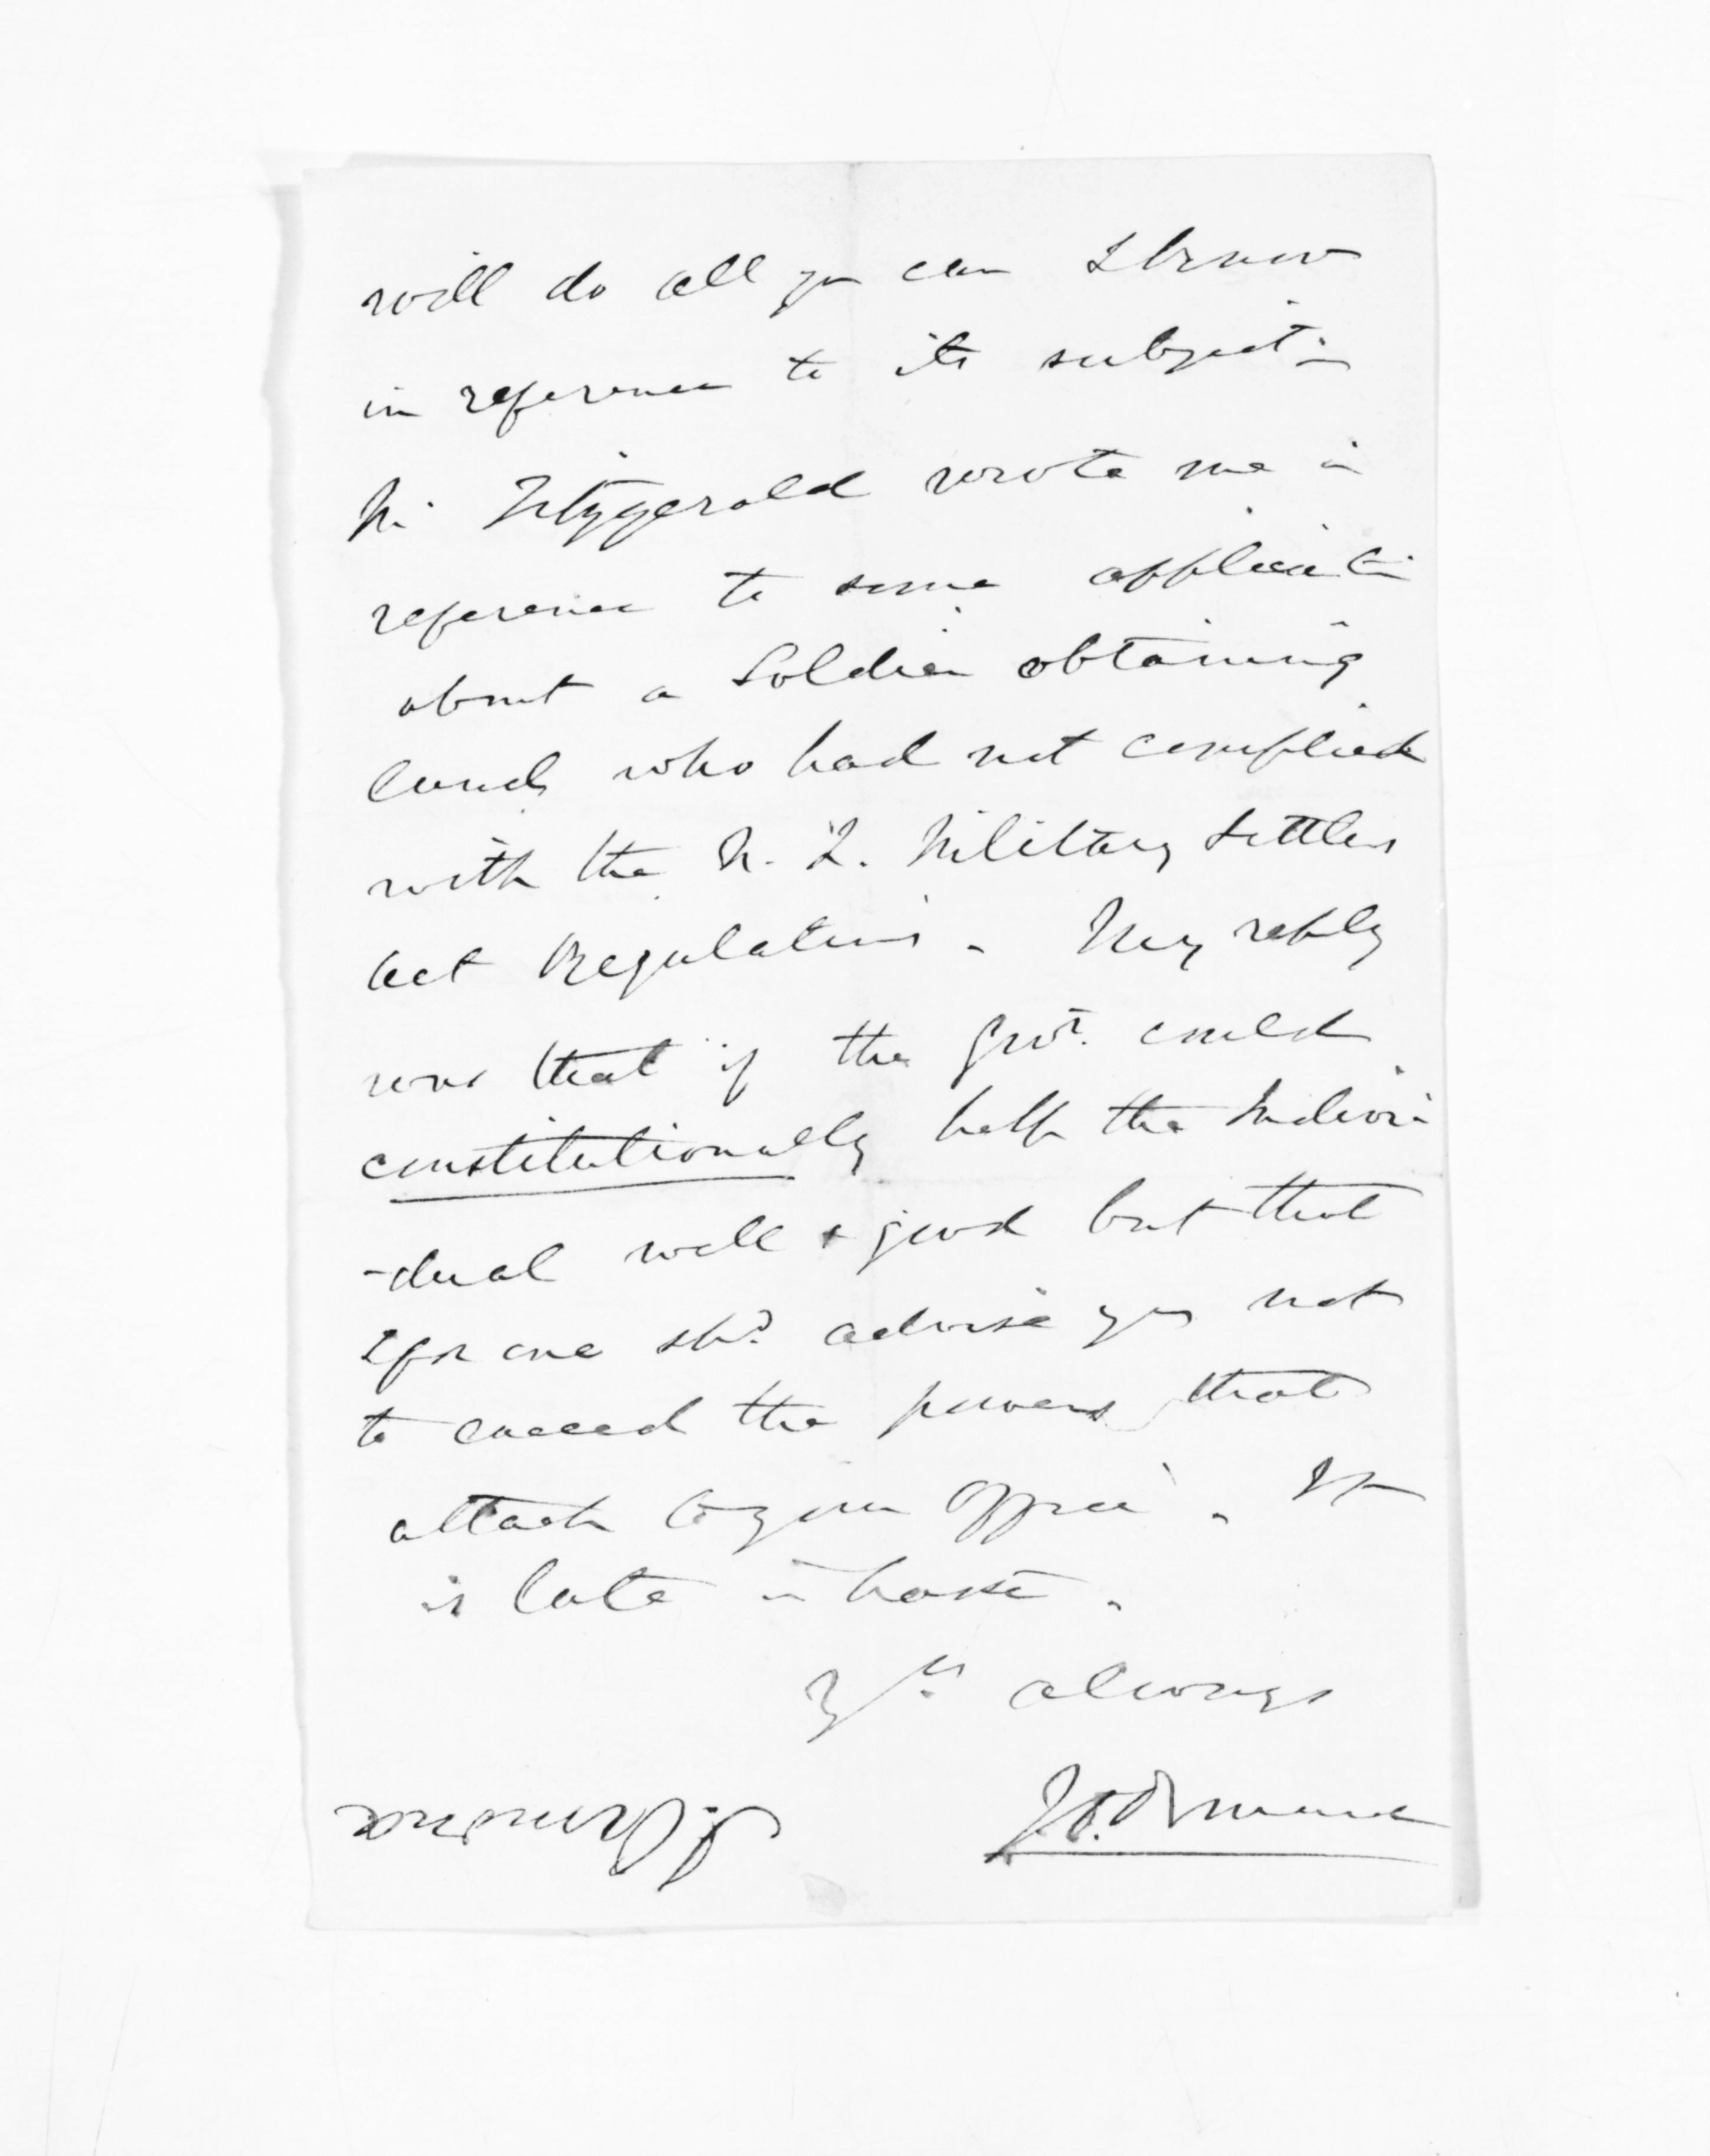 will do all you can I know
in reference to its subject -
Mr Fitzgerald wrote me in
reference to some application
about a Soldier obtaining
land, who had not complied
with the N. Z. Military Settlers
Act Regulations. My reply
was that if the Govt. could
constitutionally help the Indivi
-dual well & good but that
I for one shd. advise you not
to exceed the powers that
attach to your Office. It
is late in haste.
Yrs. always
J.D. Ormond